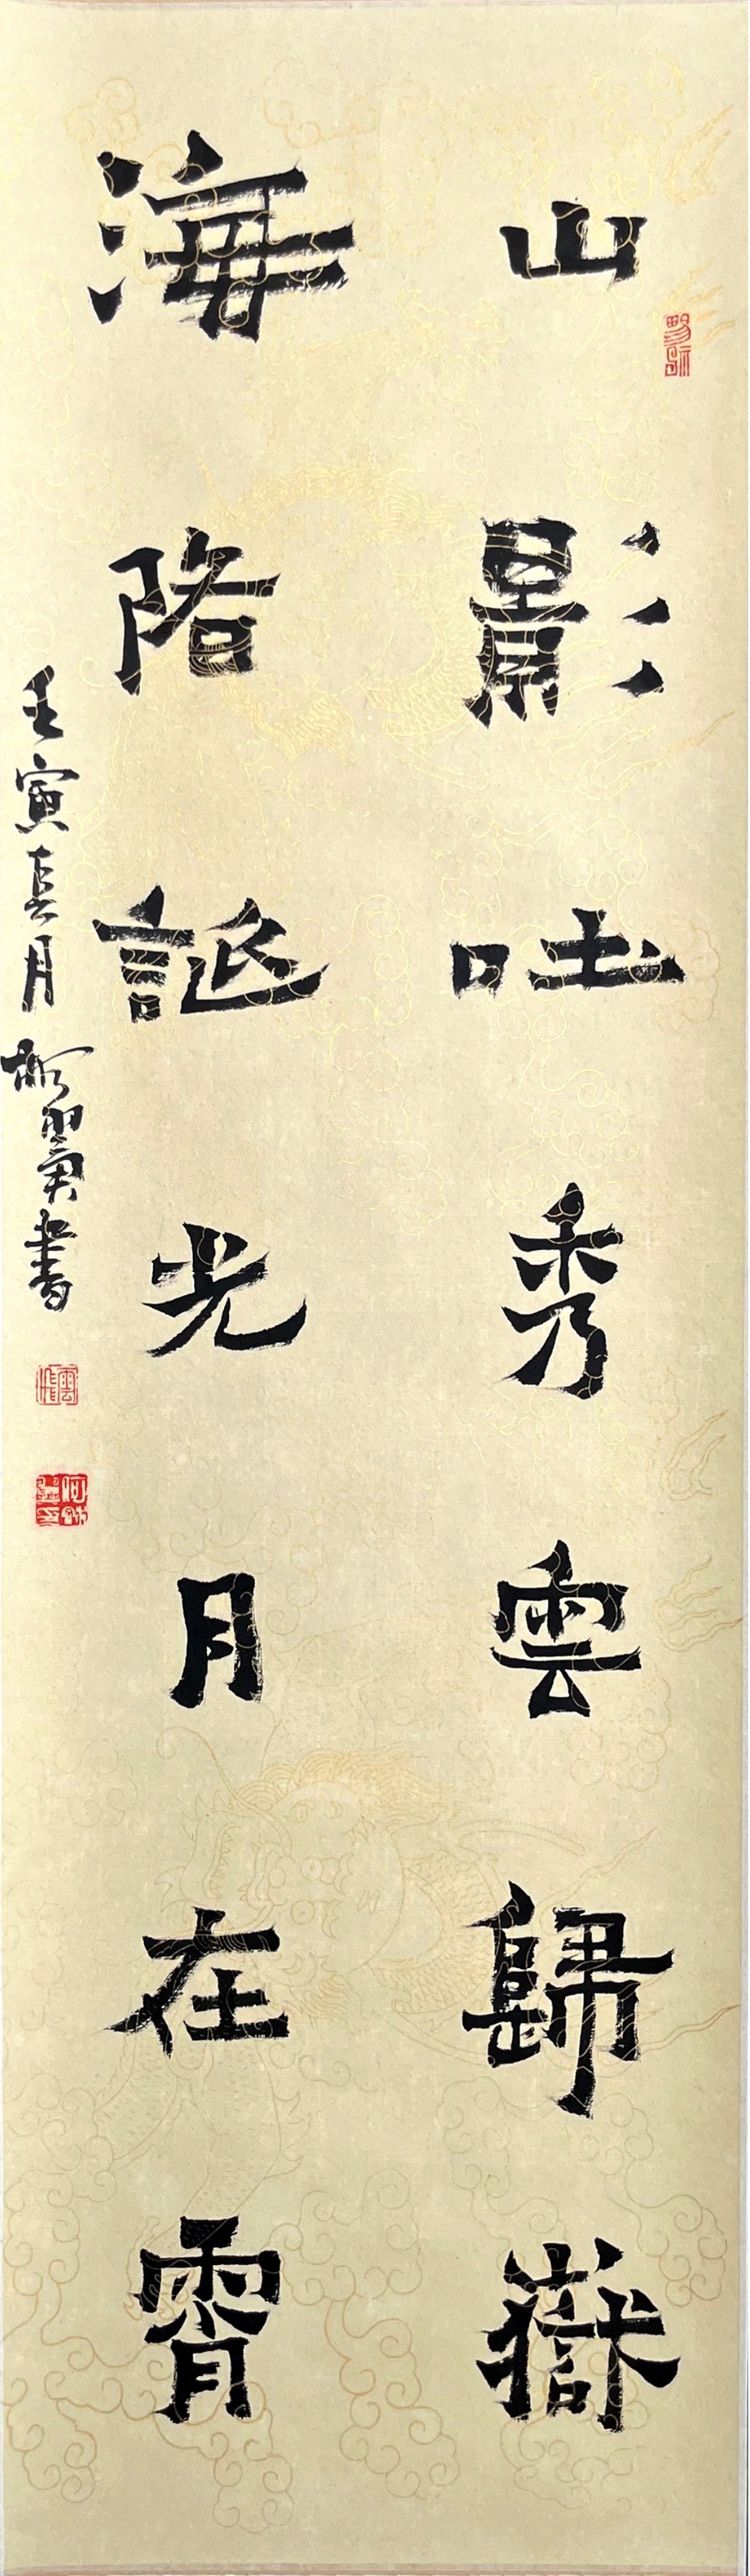 山影吐秀雲歸嶽
海誕光月在霄
壬寅月翼書